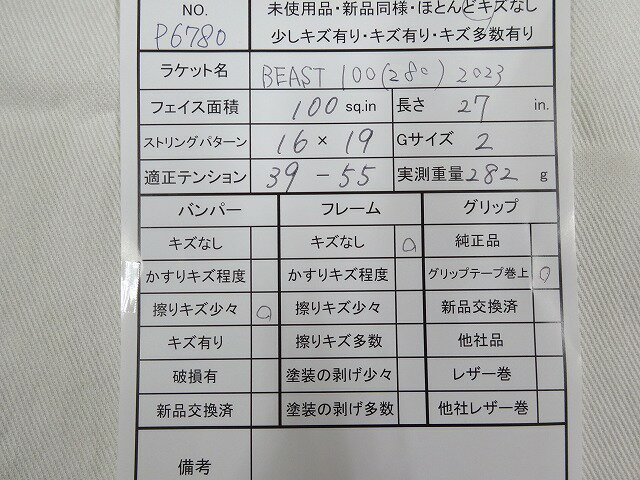 NO.
P6780
未使用品・新品同様・ほとんどキズなし
少しキズ有り・キズ有り・キズ多数有り
ラケット名 BEAST 100(280) 2023
フェイス面積 100 sq.in 長さ 27 in.
ストリングパターン 16×19 Gサイズ 2
適正テンション 39-55 実測重量 282 g
バンパー フレーム グリップ
キズなし キズなし ○ 純正品
かすりキズ程度 かすりキズ程度 グリップテープ巻上 ○
擦りキズ少々 ○ 擦りキズ少々 新品交換済
キズ有り 擦りキズ多数 他社品
破損有 塗装の剥げ少々 レザー巻
新品交換済 塗装の剥げ多数 他社レザー巻
備考